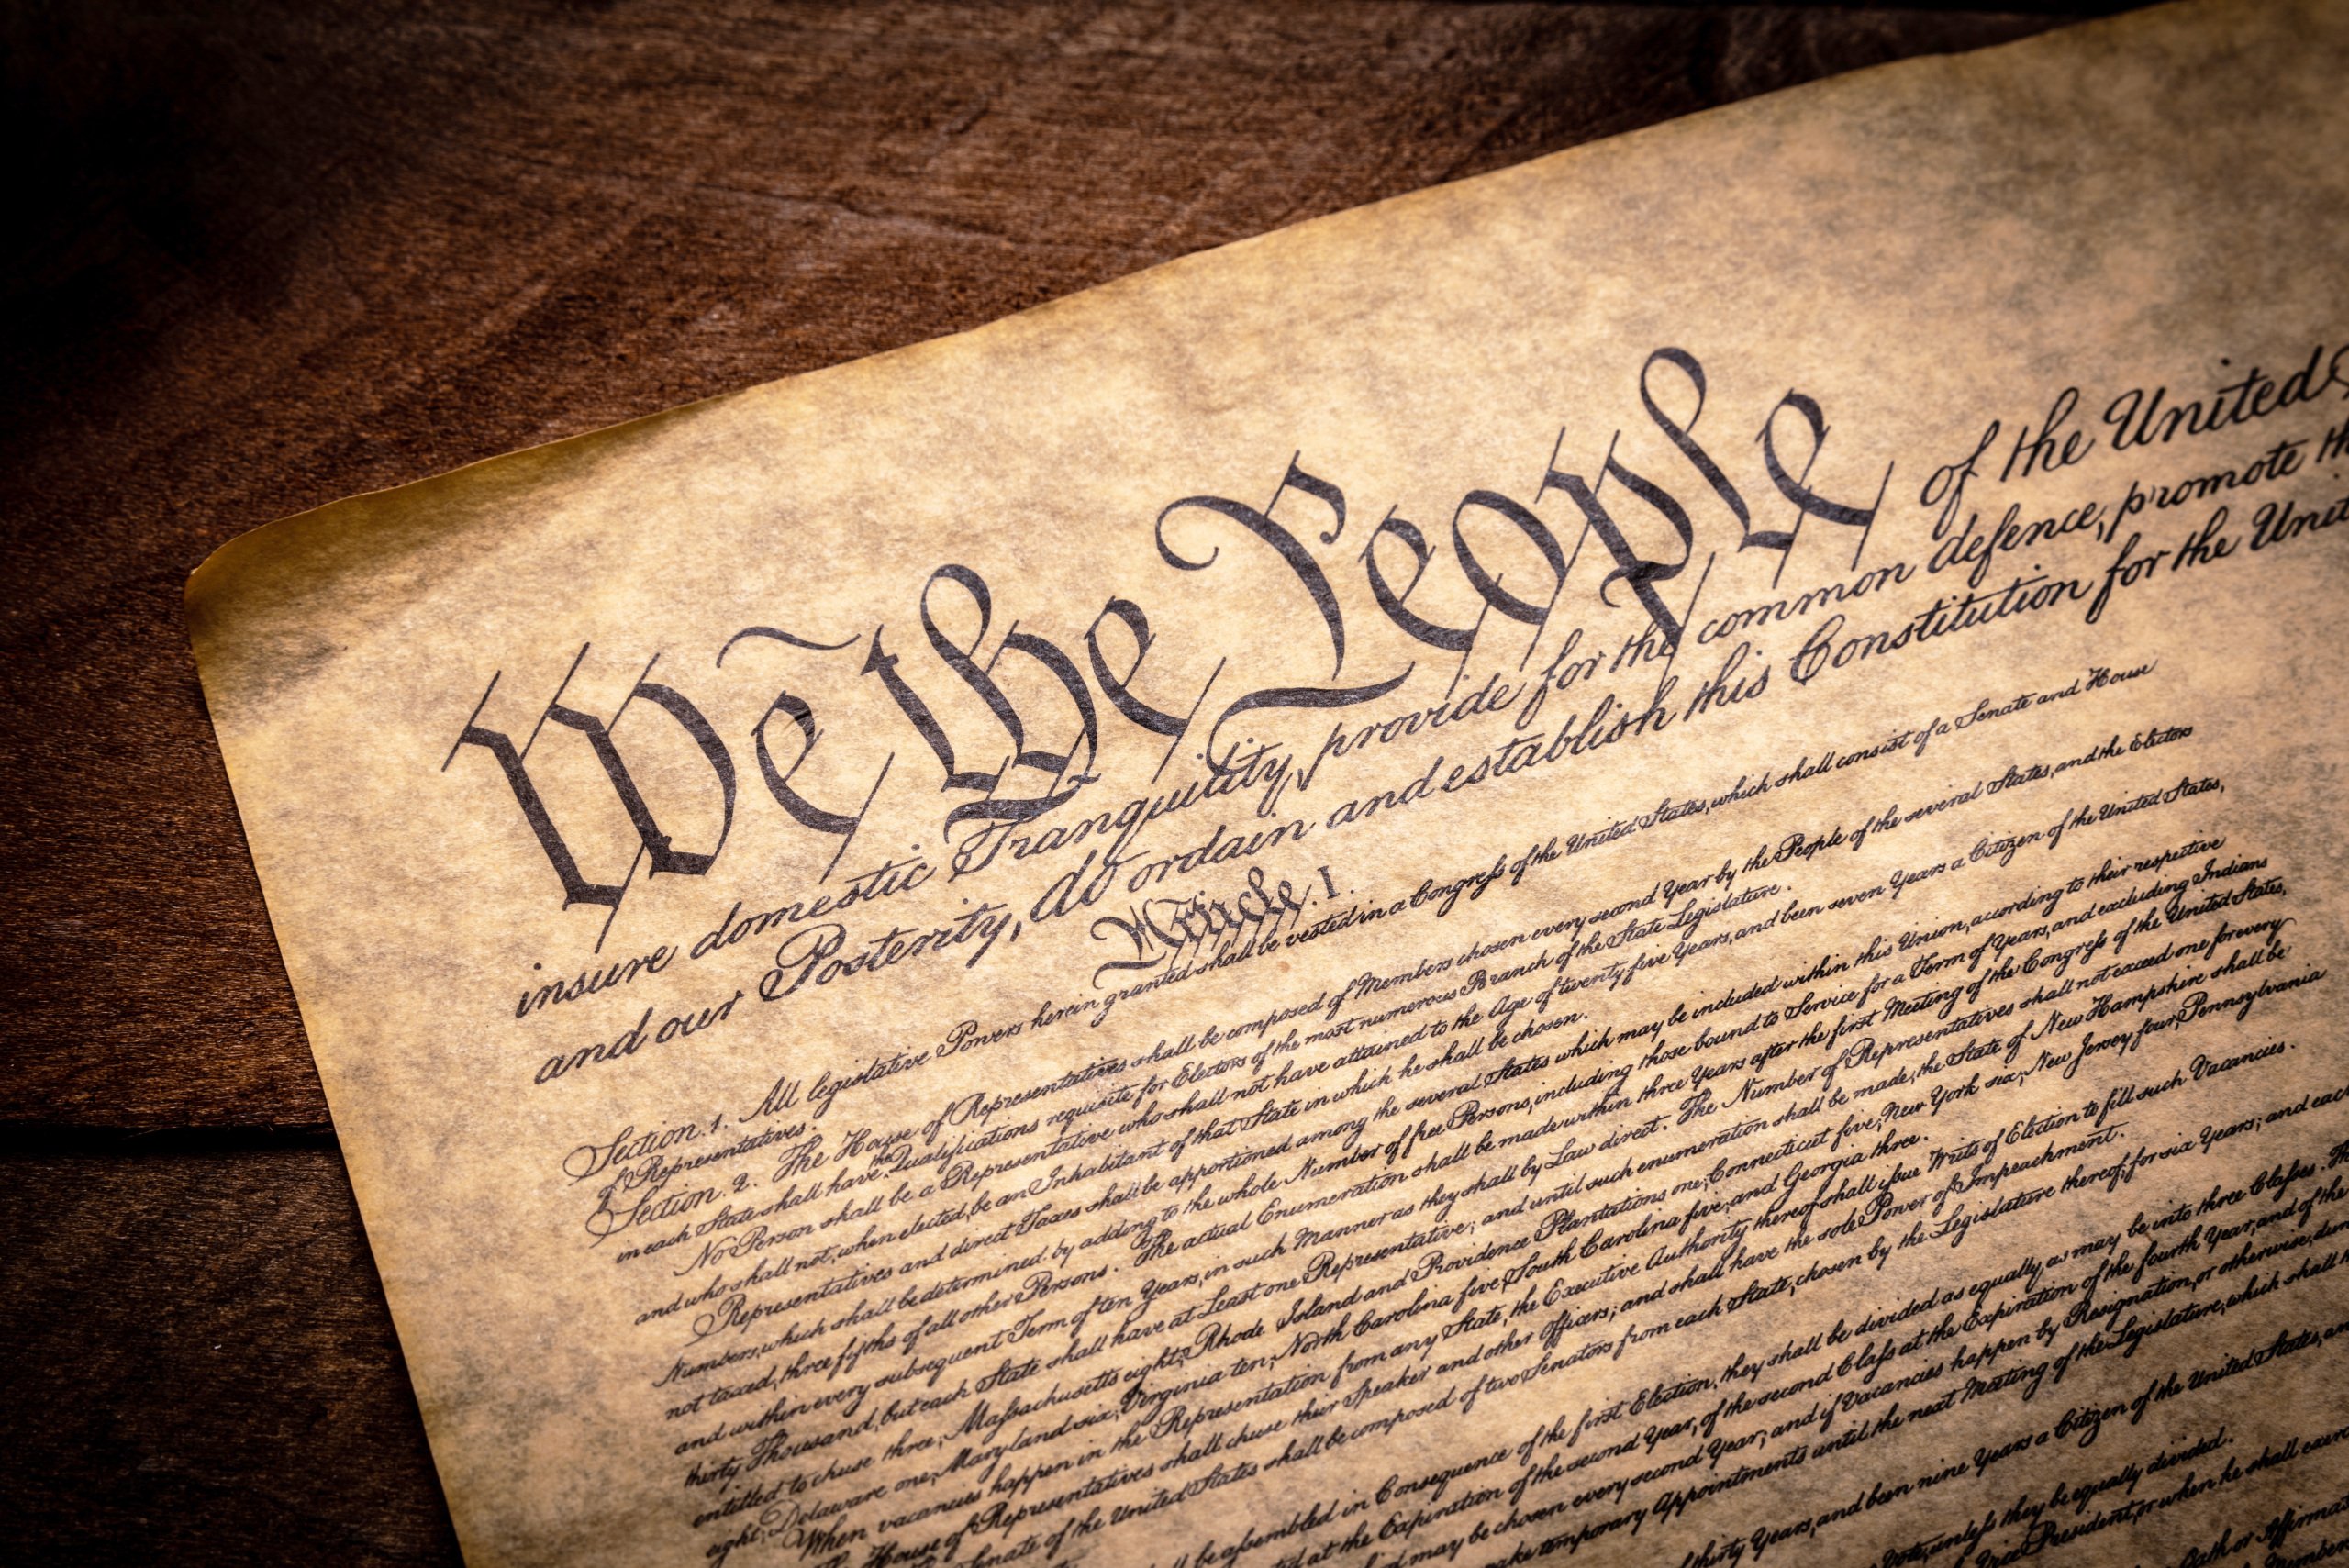 We the People of the United
insure domestic Tranquility, provide for the common defence, promote
and our Posterity, do ordain and establish this Constitution for the
Article. I.
Section. 1. All legislative Powers herein granted shall be vested in a Congress of the United States, which shall consist of a Senate and House
of Representatives.
Section. 2. The House of Representatives shall be composed of Members chosen every second Year by the People of the several States, and the Electors
in each State shall have the Qualifications requisite for Electors of the most numerous Branch of the State Legislature.
No Person shall be a Representative who shall not have attained to the Age of twenty five Years, and been seven Years a Citizen of the United States,
and who shall not, when elected, be an Inhabitant of that State in which he shall be chosen.
Representatives and direct Taxes shall be apportioned among the several States which may be included within this Union, according to their respective
Numbers, which shall be determined by adding to the whole Number of free Persons, including those bound to Service for a Term of Years, and excluding Indians
not taxed, three fifths of all other Persons. The actual Enumeration shall be made within three Years after the first Meeting of the Congress of the United States,
and within every subsequent Term of ten Years, in such Manner as they shall by Law direct. The Number of Representatives shall not exceed one for every
thirty Thousand, but each State shall have at Least one Representative; and until such enumeration shall be made, the State of New Hampshire shall be
entitled to chuse three, Massachusetts eight, Rhode Island and Providence Plantations one, Connecticut five, New York six, New Jersey four, Pennsylvania
eight, Delaware one, Maryland six, Virginia ten, North Carolina five, South Carolina five, and Georgia three.
When vacancies happen in the Representation from any State, the Executive Authority thereof shall issue Writs of Election to fill such Vacancies.
The House of Representatives shall chuse their Speaker and other Officers; and shall have the sole Power of Impeachment.
Senate of the United States shall be composed of two Senators from each State, chosen by the Legislature thereof, for six Years; and each
be assembled in Consequence of the first Election, they shall be divided as equally as may be into three Classes.
at the Expiration of the second Year, of the second Class at the Expiration of the fourth Year, and of the
may be chosen every second Year; and if Vacancies happen by Resignation, or otherwise,
make temporary Appointments until the next Meeting of the Legislature, which shall
thirty Years, and been nine Years a Citizen of the United States,
Vote, unless they be equally divided.
Vice President, or when he shall
or